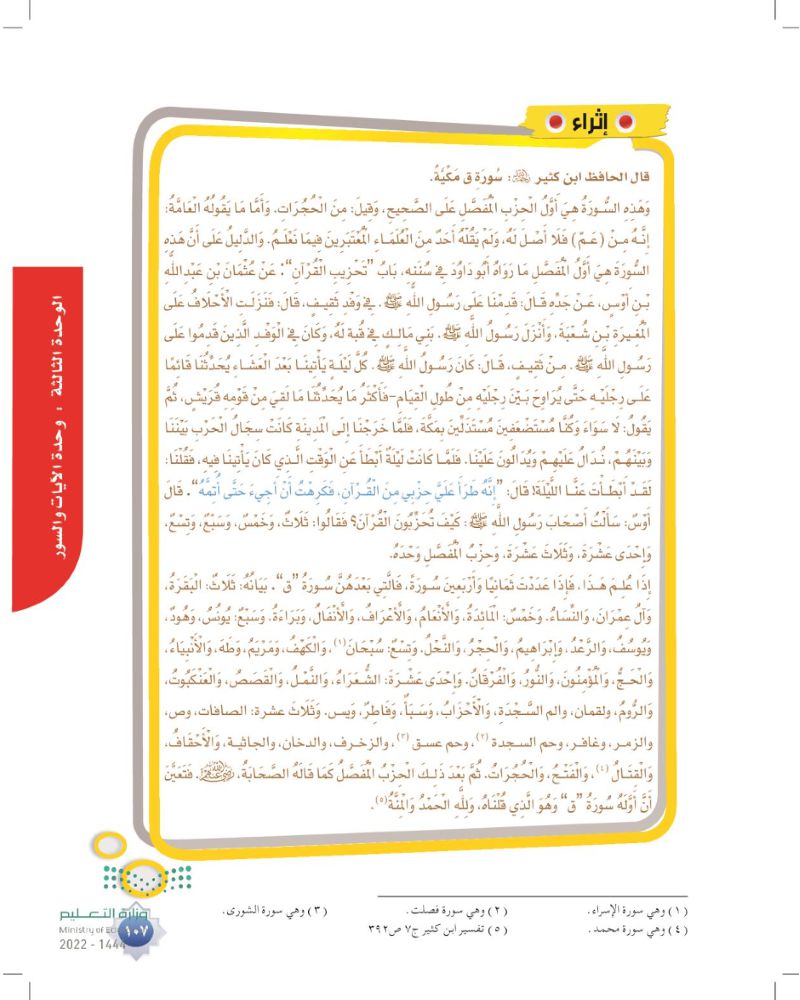 إثراء
قال الحافظ ابن كثير ﷺ: سُورَة ق مَكِّيَّةٌ.
وَهَذِهِ السُّورَةُ هِيَ أَوَّلُ الْحِزْبِ الْمُفَصَّلِ عَلَى الصَّحِيحِ، وَقِيلَ: مِنَ الْحُجُرَاتِ. وَأَمَّا مَا يَقُولُهُ الْعَامَّةُ:
إِنَّهُ مِنْ (عَمَّ) فَلَا أَصْلَ لَهُ، وَلَمْ يَقُلْهُ أَحَدٌ مِنَ الْعُلَمَاءِ الْمُعْتَبَرِينَ فِيمَا نَعْلَمُ. وَالدَّلِيلُ عَلَى أَنَّ هَذِهِ
السُّورَةَ هِيَ أَوَّلُ الْمُفَصَّلِ مَا رَوَاهُ أَبُو دَاوُدَ فِي سُنَنِهِ، بَابُ "تَحْزِيبِ الْقُرْآنِ": عَنْ عُثْمَانَ بْنِ عَبْدِ اللَّهِ
بْنِ أَوْسٍ، عَنْ جَدِّهِ قَالَ: قَدِمْنَا عَلَى رَسُولِ اللَّهِ ﷺ. فِي وَفْدِ ثَقِيفٍ، قَالَ: فَنَزَلَتِ الْأَحْلَافُ عَلَى
الْمُغِيرَةِ بْنِ شُعْبَةَ، وَأَنْزَلَ رَسُولُ اللَّهِ ﷺ. بَنِي مَالِكٍ فِي قُبَّةٍ لَهُ، وَكَانَ فِي الْوَفْدِ الَّذِينَ قَدِمُوا عَلَى
رَسُولِ اللَّهِ ﷺ. مِنْ ثَقِيفٍ، قَالَ: كَانَ رَسُولُ اللَّهِ ﷺ. كُلَّ لَيْلَةٍ يَأْتِينَا بَعْدَ الْعَشَاءِ يُحَدِّثُنَا قَائِمًا
عَلَى رِجْلَيْهِ حَتَّى يُرَاوِحَ بَيْنَ رِجْلَيْهِ مِنْ طُولِ الْقِيَامِ-فَأَكْثَرُ مَا يُحَدِّثُنَا مَا لَقِيَ مِنْ قَوْمِهِ قُرَيْشٍ، ثُمَّ
يَقُولُ: لَا سَوَاءَ وَكُنَّا مُسْتَضْعَفِينَ مُسْتَذَلِّينَ بِمَكَّةَ، فَلَمَّا خَرَجْنَا إِلَى الْمَدِينَةِ كَانَتْ سِجَالُ الْحَرْبِ بَيْنَنَا
وَبَيْنَهُمْ، نُدَالُ عَلَيْهِمْ وَيُدَالُونَ عَلَيْنَا. فَلَمَّا كَانَتْ لَيْلَةٌ أَبْطَأَ عَنِ الْوَقْتِ الَّذِي كَانَ يَأْتِينَا فِيهِ، فَقُلْنَا:
لَقَدْ أَبْطَأْتَ عَنَّا اللَّيْلَةَ! قَالَ: "إِنَّهُ طَرَأَ عَلَيَّ حِزْبِي مِنَ الْقُرْآنِ، فَكَرِهْتُ أَنْ أَجِيءَ حَتَّى أُتِمَّهُ". قَالَ
أَوْسٌ: سَأَلْتُ أَصْحَابَ رَسُولِ اللَّهِ ﷺ: كَيْفَ تُحَزِّبُونَ الْقُرْآنَ؟ فَقَالُوا: ثَلَاثٌ، وَخَمْسٌ، وَسَبْعٌ، وَتِسْعٌ،
وَإِحْدَى عَشْرَةَ، وَثَلَاثَ عَشْرَةَ، وَحِزْبُ الْمُفَصَّلِ وَحْدَهُ.
إِذَا عُلِمَ هَذَا. فَإِذَا عَدَدْتَ ثَمَانِيًا وَأَرْبَعِينَ سُورَةً، فَالَّتِي بَعْدَهُنَّ سُورَةُ "ق". بَيَانُهُ: ثَلَاثٌ: الْبَقَرَةُ،
وَآلُ عِمْرَانَ، وَالنِّسَاءُ. وَخَمْسٌ: الْمَائِدَةُ، وَالْأَنْعَامُ، وَالْأَعْرَافُ، وَالْأَنْفَالُ، وَبَرَاءَةُ. وَسَبْعٌ: يُونُسُ، وَهُودٌ،
وَيُوسُفُ، وَالرَّعْدُ، وَإِبْرَاهِيمُ، وَالْحِجْرُ، وَالنَّحْلُ. وَتِسْعٌ: سُبْحَانَ(١)، وَالْكَهْفُ، وَمَرْيَمُ، وَطَهَ، وَالْأَنْبِيَاءُ،
وَالْحَجُّ، وَالْمُؤْمِنُونَ، وَالنُّورُ، وَالْفُرْقَانُ. وَإِحْدَى عَشْرَةَ: الشُّعَرَاءُ، وَالنَّمْلُ، وَالْقَصَصُ، وَالْعَنْكَبُوتُ،
وَالرُّومُ، ولقمان، والم السَّجْدَةِ، وَالْأَحْزَابُ، وَسَبَأٌ، وَفَاطِرُ، ويس. وَثَلَاثَ عشرة: الصافات، وص،
والزمر، وغافر، وحم السجدة (٢)، وحم عسق (٣)، والزخرف، والدخان، والجاثية، وَالْأَحْقَافُ،
وَالْقِتَالُ (٤)، وَالْفَتْحُ، وَالْحُجُرَاتُ. ثُمَّ بَعْدَ ذَلِكَ الْحِزْبُ الْمُفَصَّلُ كَمَا قَالَهُ الصَّحَابَةُ، رضي الله عنهم. فَتَعَيَّنَ
أَنَّ أَوَّلَهُ سُورَةُ "ق" وَهُوَ الَّذِي قُلْنَاهُ، وَلِلَّهِ الْحَمْدُ وَالْمِنَّةُ(٥).
الوحدة الثالثة : وحدة الآيات والسور
(١) وهي سورة الإسراء. (٢) وهي سورة فصلت. (٣) وهي سورة الشورى.
(٤) وهي سورة محمد. (٥) تفسير ابن كثير ج٧ ص٣٩٢
وزارة التعليم
Ministry of
١٠٧
2022 - 1444